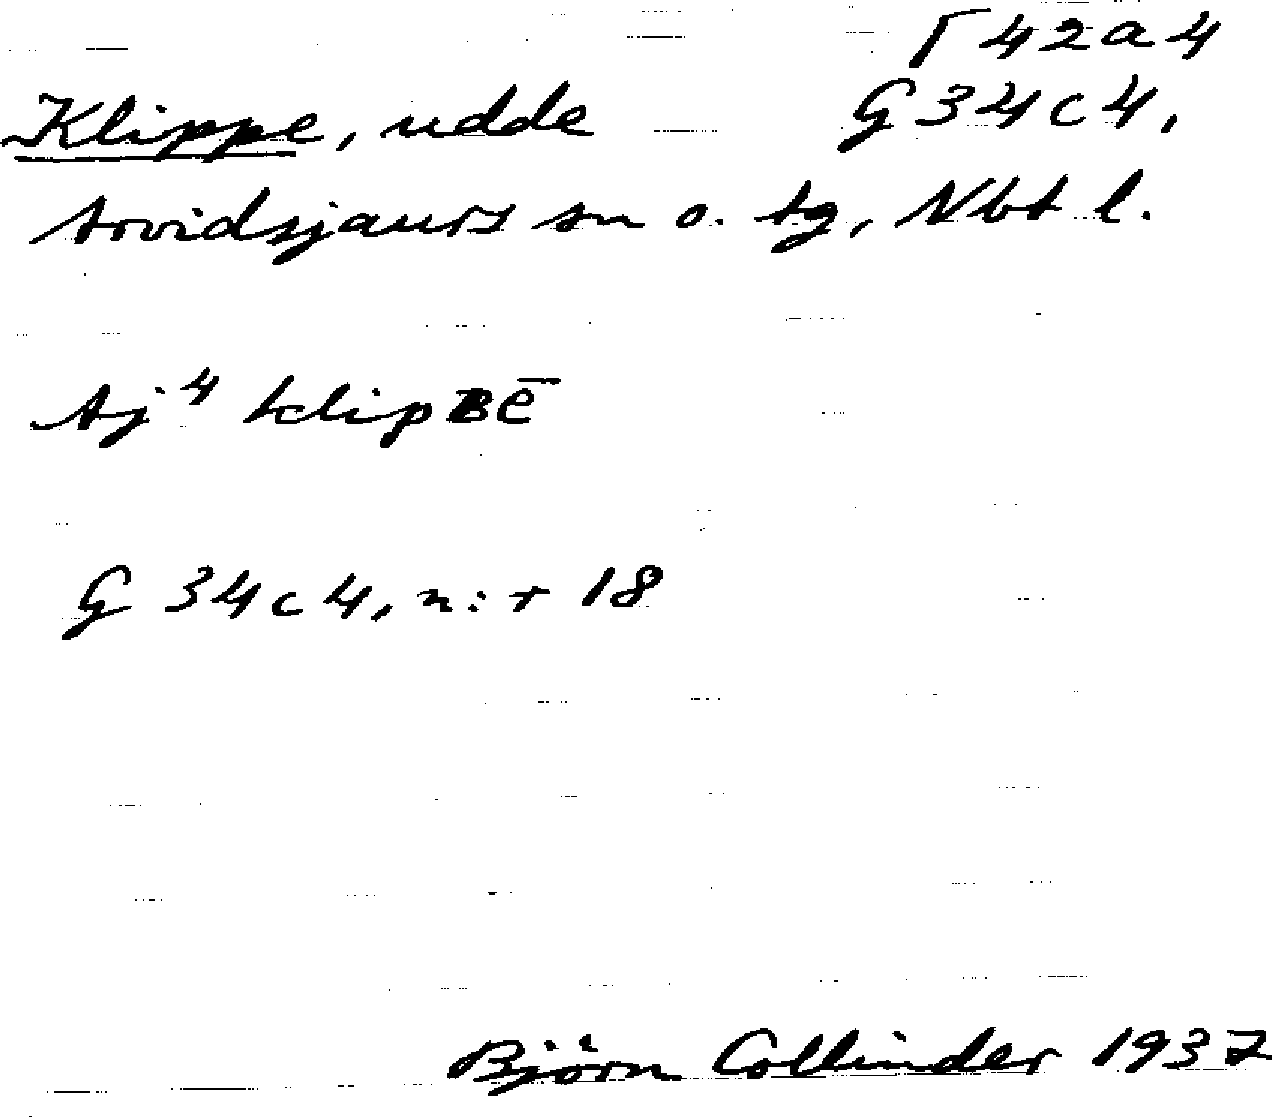 Γ 42a4
Klippe, udde G 34c4,
Arvidsjaurs sn o. tg, Nbt l.
Aj⁴ klipʙē
G 34c4, n:r 18
Björn Collinder 1937